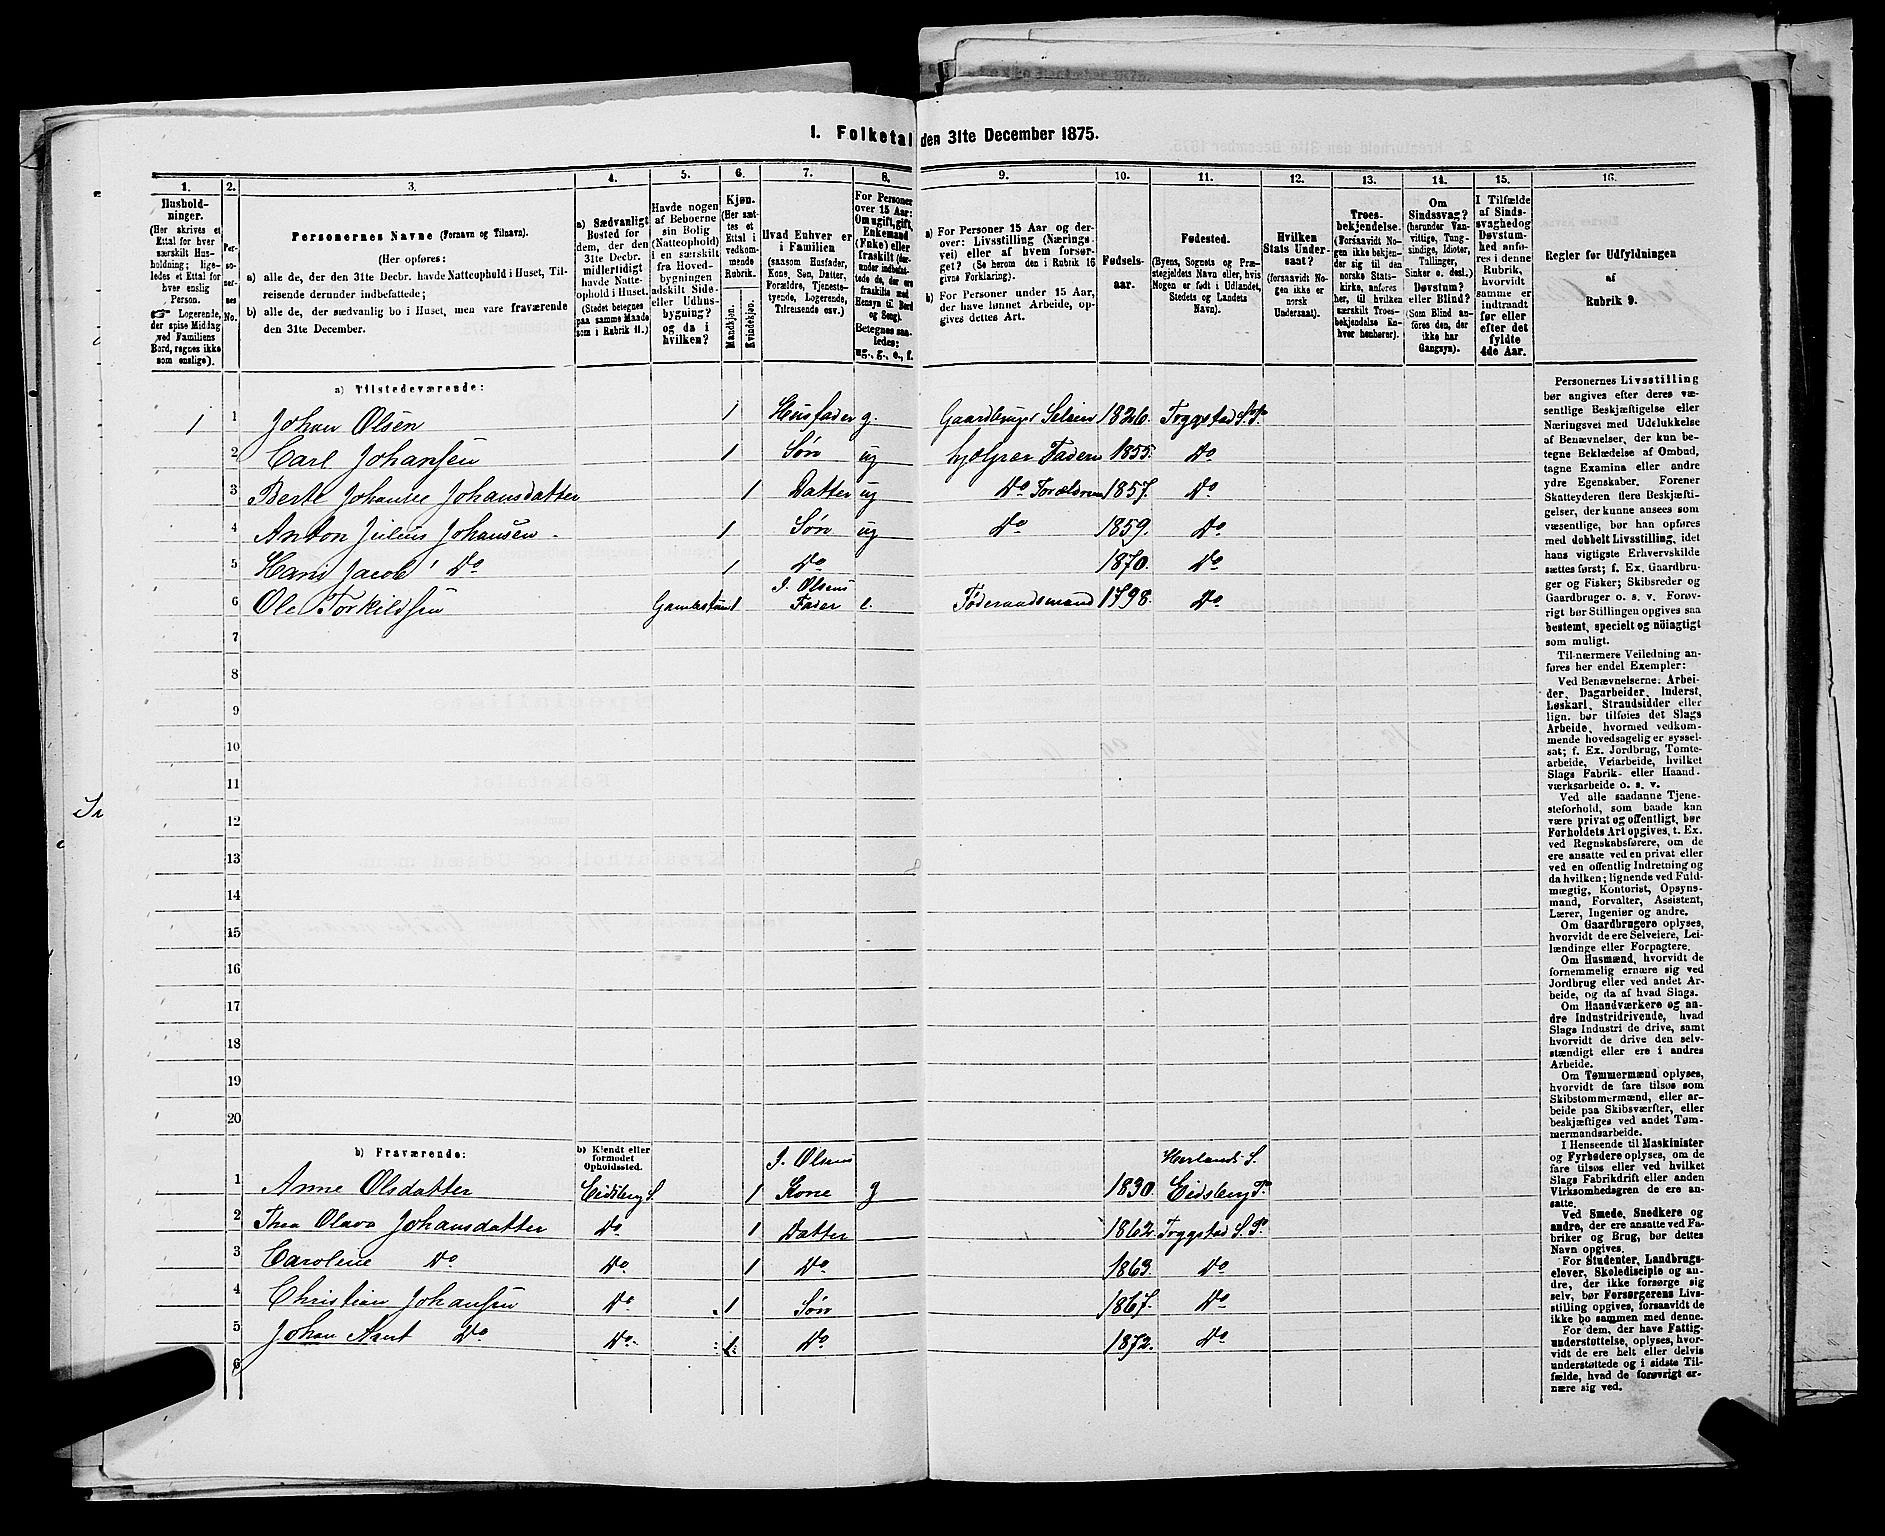 1. Folketal den 31te December 1875.
1. 2. 3. 4. 5. 6. 7. 8. 9. 10. 11. 12. 13. 14. 15. 16.
Husholdninger.
(Her skrives et
Ettal for hver
særskilt Husholdning;
ligeledes et Ettal for
hver enslig
Person.
Logerende,
der spise Middag
ved Familiens
Bord, regnes ikke
som enslige).
Personernes No.
Personernes Navne (Fornavn og Tilnavn).
(Her opføres:
a) alle de, der den 31te Decbr. havde Natteophold i Huset, Tilreisende
derunder indbefattede;
b) alle de, der sædvanlig bo i Huset, men vare fraværende
den 31te December.
a) Sædvanligt
Bosted for
dem, der den
31te Decbr.
midlertidigt
havde Natteophold
i Huset.
(Stedet betegnes
paa samme Maade
som i Rubrik 11.)
Havde nogen
af Beboerne
sin Bolig
(Natteophold)
i en særskilt
fra Hovedbygningen
adskilt Side-
eller Udhusbygning?
og da i
hvilken?
Kjøn.
(Her sættes
et
Ettal i
vedkommende
Rubrik.
Mandkjøn.
Kvindekjøn.
Hvad Enhver er
i Familien
(saasom Husfader,
Kone, Søn, Datter,
Forældre, Tjenestetyende,
Logerende,
Tilreisende osv.)
For Personer
over 15 Aar:
Om ugift, gift,
Enkemand
(Enke) eller
fraskilt (derunder
indbefattede,
de, der ere
fraskilte med
Hensyn til Bord
og Seng).
Betegnes saaledes:
ug., g., e., f.
a) For Personer 15 Aar og derover:
Livsstilling (Næringsvei)
eller af hvem forsørget?
(Se herom den i Rubrik 16
givne Forklaring).
b) For Personer under 15 Aar,
der have lønnet Arbeide, opgives
dettes Art.
Fødselsaar.
Fødested.
(Byens, Sognets og Præstegjeldets
Navn eller, hvis
Nogen er født i Udlandet,
Stedets og Landets
Navn).
Hvilken
Stats Undersaat?
(forsaavidt Nogen
ikke er
norsk
Undersaat).
Troesbekjendelse.
(Forsaavidt Nogen
ikke bekjender
sig til den
norske Statskirke,
anføres
her, til hvilken
særskilt Troesbekjendelse
Enhver
henhører).
Om
Sindssvag?
(herunder Vanvittige,
Tungsindige,
Idioter,
Tullinger,
Sinker o. desl.)
Døvstum?
eller Blind?
(Som Blind anføres
den, der
ikke har
Gangsyn).
I Tilfælde
af Sindssvaghed
og
Døvstumhed
anføres
i denne
Rubrik,
hvorvidt
samme er
indtraadt
før eller
efter det
fyldte
4de Aar.
Regler for Udfyldningen
af
Rubrik 9.
a) Tilstedeværende:
1 1 Johan Olsen 1 Husfader g. Gaardbruger Seleier 1826. Trygstad S. P.
2 Carl Johansen 1 Søn ug hjelper Faderen 1855. Do
3 Berte Johanse Johansdatter 1 Datter ug Do Forældrene 1857. Do
4 Anton Julius Johansen 1 Søn ug Do 1859. Do
5 Hans Jacob Do 1 Do 1870. Do
6 Ole Torkildsen 1 J. Olsens Fader e. Føderaadsmand 1798. Do
7
8
9
10
11
12
13
14
15
16
17
18
19
20
b) Fraværende:
b) Kjendt eller
formodet
Opholdssted.
1 Anne Olsdatter Eidsberg S. 1 J. Olsens Kone g 1830. Herlands S. Eidsberg P.
2 Thea Olava Johansdatter Do 1 Datter 1862. Trygstad S. P.
3 Caroline Do Do 1 Do 1863. Do
4 Christian Johansen Do 1 Søn 1867. Do
5 Johan Arnt Do Do 1 Do 1872. Do
6
Personernes Livsstilling
bør angives efter deres væsentlige
Beskjæftigelse eller
Næringsvei med Udelukkelse
af Benævnelser, der kun betegne
Beklædelse af Ombud,
tagne Examina eller andre
ydre Egenskaber. Forener
Skatteyderen flere Beskjæftigelser,
der kunne ansees som
væsentlige, bør han opføres
med dobbelt Livsstilling, idet
hans vigtigste Erhvervskilde
sættes først; f. Ex. Gaardbruger
og Fisker; Skibsreder og
Gaardbruger o. s. v. Forøvrigt
bør Stillingen opgives saa
bestemt, specielt og nøiagtigt
som muligt.
Til nærmere Veiledning anføres
her endel Exempler:
Ved Benævnelserne: Arbeider,
Dagarbeider, Inderst,
Løskarl, Strandsidder eller
lign. bør tilføies det Slags
Arbeide, hvormed vedkommende
hovedsagelig er sysselsat;
f. Ex. Jordbrug, Tomtearbeide,
Veiarbeide, hvilket
Slags Fabrik- eller Haandværksarbeide
o. s. v.
Ved alle saadanne Tjenesteforhold,
som baade kan
være privat og offentligt, bør
Forholdets Art opgives, t. Ex.
ved Regnskabsførere, om de
ere ansatte ved en privat eller
ved en offentlig Indretning og
da hvilken; lignende ved Fuldmægtig,
Kontorist, Opsynsmand,
Forvalter, Assistent,
Lærer, Ingeniør og andre.
Om Gaardbrugere oplyses,
hvorvidt de ere Selveiere, Leilændinge
eller Forpagtere.
Om Husmænd, hvorvidt de
fornemmelig ernære sig ved
Jordbrug eller ved andet Arbeide,
og da af hvad Slags.
Om Haandværkere og andre
Industridrivende, hvad
Slags Industri de drive, samt
hvorvidt de drive den selvstændigt
eller ere i andres
Arbeide.
Om Tømmermænd oplyses,
hvorvidt de fare tilsøs som
Skibstømmermænd, eller arbeide
paa Skibsværfter, eller
beskjæftiges ved andet Tømmermandsarbeide.
I Henseende til Maskinister
og Fyrbødere oplyses, om de
fare tilsøs eller ved hvilket
Slags Fabrikdrift eller anden
Virksomhed de ere ansatte.
Ved Smede, Snedkere og
andre, der ere ansatte ved Fabriker
og Brug, bør dettes
Navn opgives.
For Studenter, Landbrugselever,
Skoledisciple og andre,
der ikke forsørge sig
selv, bør Forsørgerens Livsstilling
opgives, forsaavidt de
ikke bo sammen med denne.
For dem, der have Fattigunderstøttelse,
oplyses, hvorvidt
de ere helt eller delvis
understøttede og i sidste Tilfælde,
hvad de forøvrigt ernære
sig ved.